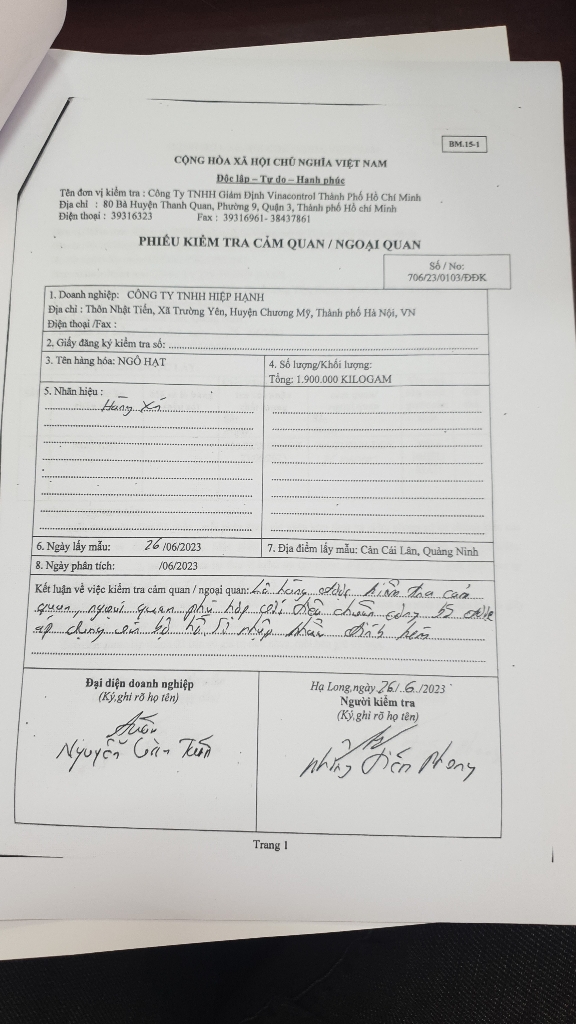 BM.15-1
CỘNG HÒA XÃ HỘI CHỦ NGHĨA VIỆT NAM
Độc lập – Tự do – Hạnh phúc
Tên đơn vị kiểm tra : Công Ty TNHH Giám Định Vinacontrol Thành Phố Hồ Chí Minh
Địa chỉ : 80 Bà Huyện Thanh Quan, Phường 9, Quận 3, Thành phố Hồ chí Minh
Điện thoại : 39316323 Fax : 39316961- 38437861
PHIẾU KIỂM TRA CẢM QUAN / NGOẠI QUAN
Số / No:
706/23/0103/ĐĐK
1. Doanh nghiệp: CÔNG TY TNHH HIỆP HẠNH
Địa chỉ : Thôn Nhật Tiến, Xã Trường Yên, Huyện Chương Mỹ, Thành phố Hà Nội, VN
Điện thoại /Fax :
2. Giấy đăng ký kiểm tra số:
3. Tên hàng hóa: NGÔ HẠT
4. Số lượng/Khối lượng:
Tổng: 1.900.000 KILOGAM
5. Nhãn hiệu :
Hàng xá
6. Ngày lấy mẫu: 26/06/2023
7. Địa điểm lấy mẫu: Cân Cái Lân, Quảng Ninh
8. Ngày phân tích: /06/2023
Kết luận về việc kiểm tra cảm quan / ngoại quan: Lô hàng được kiểm tra cảm
quan, ngoại quan phù hợp với tiêu chuẩn công bố được
áp dụng với bộ hồ sơ nhập khẩu đính kèm
Đại diện doanh nghiệp
(Ký,ghi rõ họ tên)
Nguyễn Văn
Hạ Long,ngày 26/.6./2023
Người kiểm tra
(Ký,ghi rõ họ tên)
Phùng Tiến Phong
Trang 1